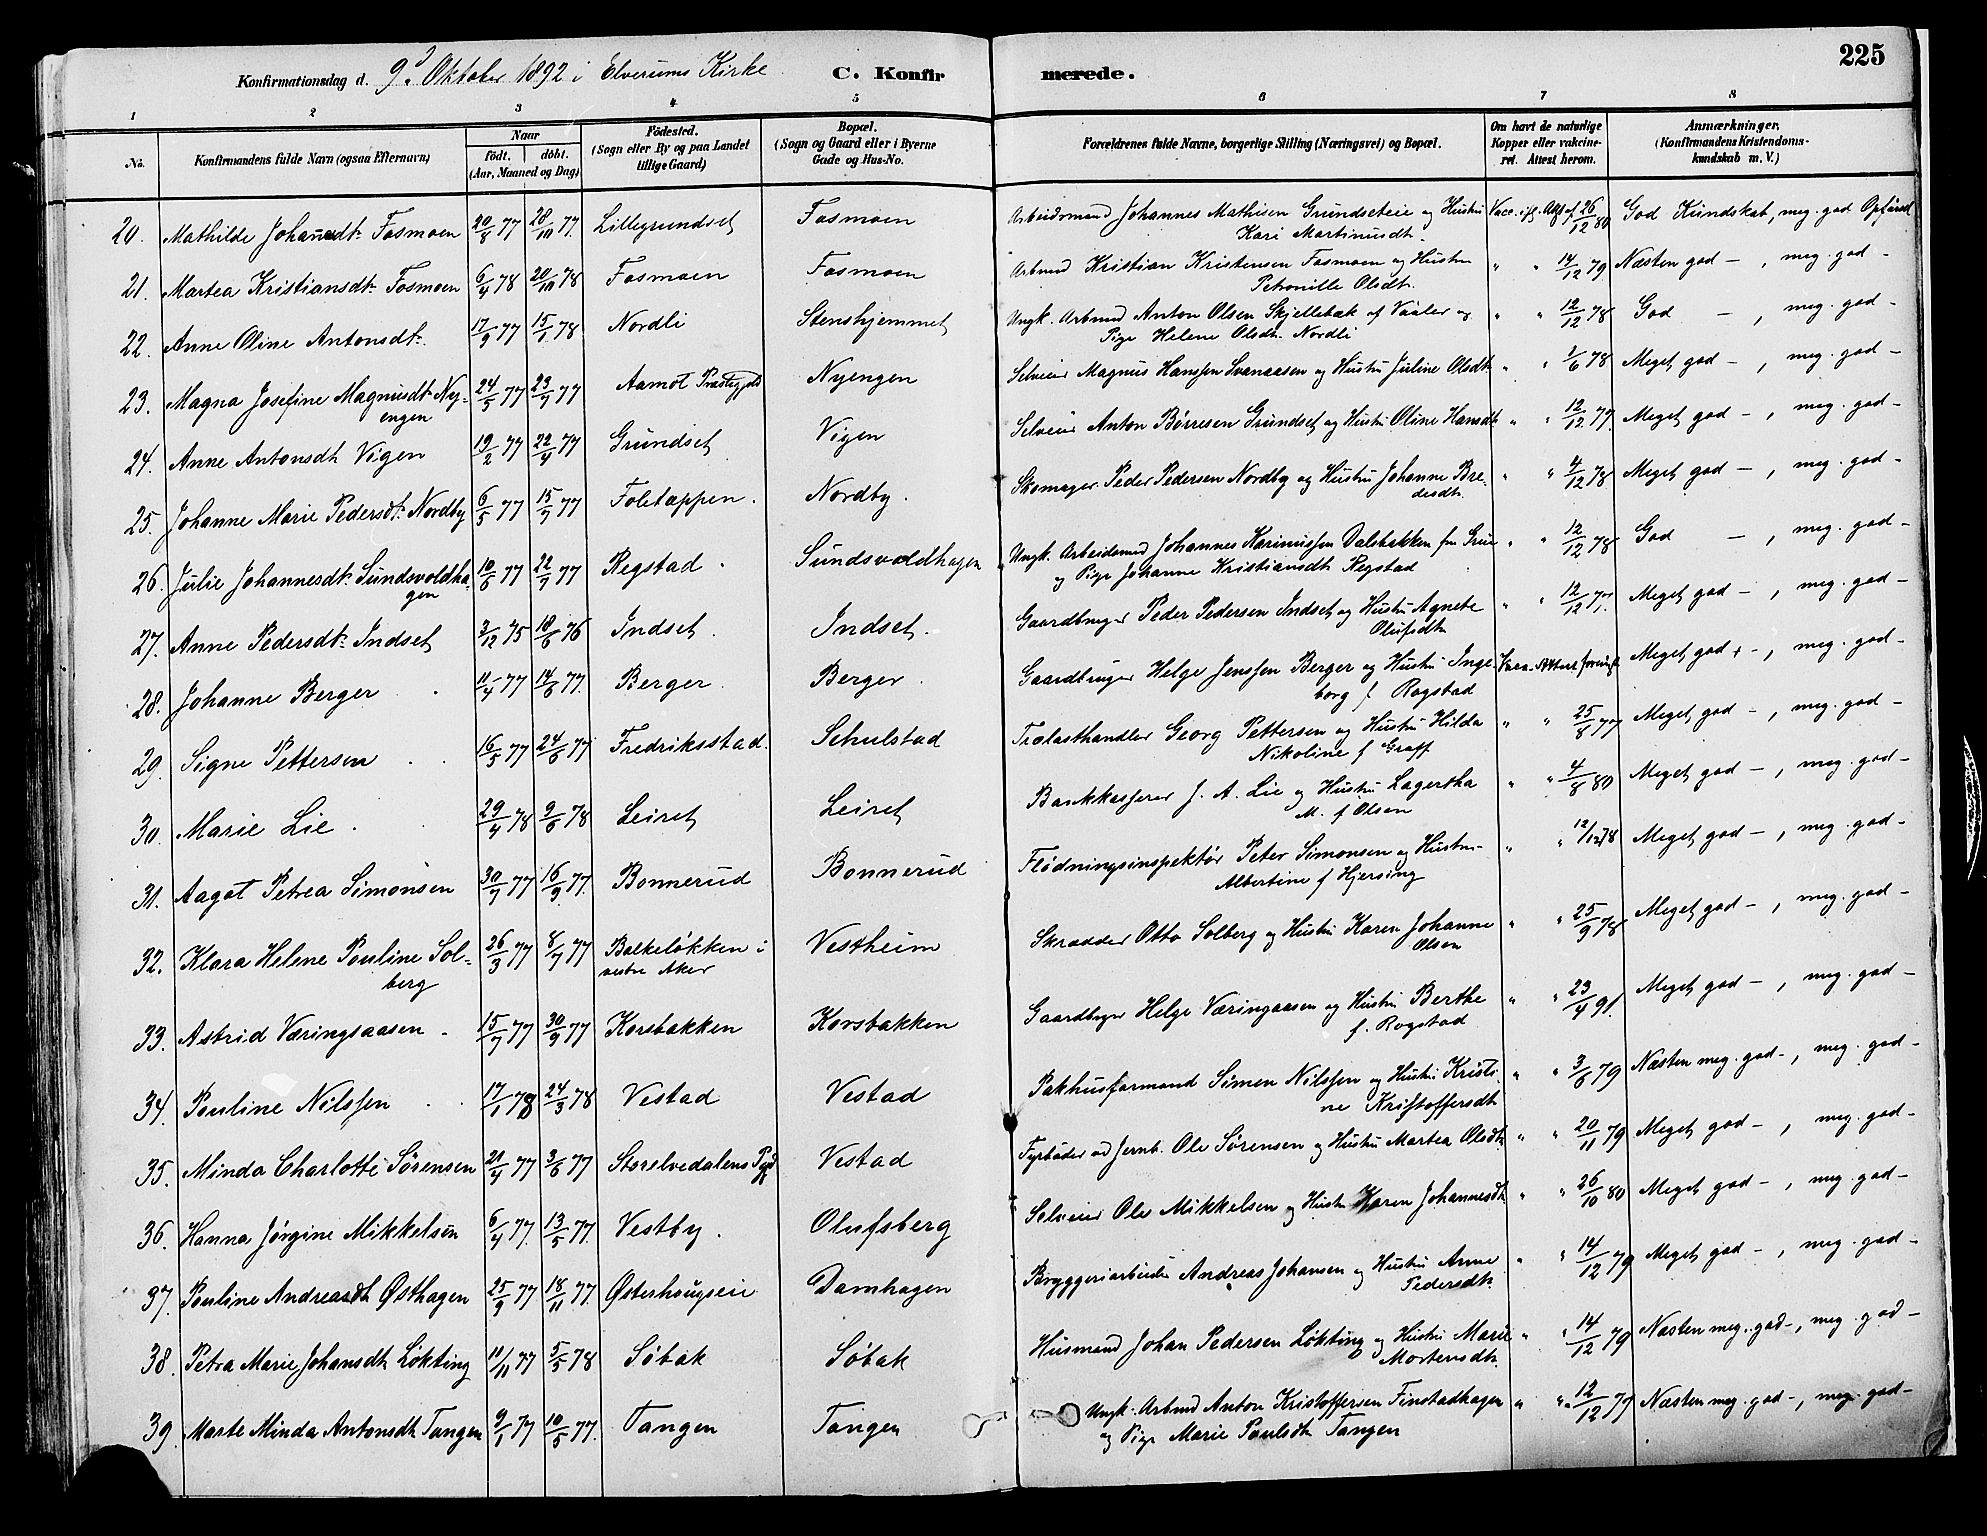 225
Konfirmationsdag d. 9d Oktober 1892 i Elverums Kirke C. Konfirmerede.
1 2 3 4 5 6 7 8
No. Konfirmandens fulde Navn (ogsaa Efternavn) Naar födt. döbt. (Aar, Maaned og Dag) Födested. (Sogn eller By og paa Landet tillige Gaard) Bopæl. (Sogn og Gaard eller i Byerne Gade og Hus-No. Forældrenes fulde Navne, borgerlige Stilling (Næringsvei) og Bopæl. Om havt de naturlige Kopper eller vakcineret. Attest herom. Anmærkninger. (Konfirmandens Kristendomskundskab m. V.)
20. Mathilde Johansdt. Fosmoen 20/8 77 28/10 77. Lillegrundset Fosmoen Arbeidsmand Johannes Mathisen Grundseteie og Hustru Vacc. if. Att. af 26/12 80 God Kundskab, meg. god Opförsel
Kari Martinusdt.
21. Martea Kristiansdt. Fosmoen 6/4 78 20/10 78 Fosmoen Fosmoen Arbmd Kristian Kristensen Fosmoen og Hustru " " 14/12 79 Næsten god - , meg. god -
Petronille Olsdt.
22. Anne Oline Antonsdt. 17/9 77 15/1 78 Nordli Stenshjemmet Ungk. Arbmd Anton Olsen Skjellebæk af Vaaler og " " 12/12 78 God - , meg. god -
Pige Helene Olsdt. Nordli
23. Magna Josefine Magnusdt. Ny- 24/5 77 23/9 77 Aamot Præstegjeld Nyengen Selveier Magnus Hanssen Svenaasen og Hustru Juline Olsdt. " " 1/6 78 Meget god - , meg. god -
engen
24. Anne Antonsdt. Vigen 19/2 77 22/4 77 Grundset Vigen Selveier Anton Børresen Grundset og Hustru Oline Hansdt. " " 12/12 77. Meget god - , meg. god -
25. Johanne Marie Pedersdt. Nordby 6/5 77 15/7 77 Foletappen. Nordby. Skomager Peder Pedersen Nordby og Hustru Johanne Bre- " " 4/12 78 Meget god - , meg. god -
desdt.
26. Julie Johannesdt. Sundsvoldha- 10/6 77 22/9 77 Regstad. Sundsvoldhagen Ungk. Arbeidsmd Johannes Karinussen Dalsbakken fra Grue " " 12/12 78 God - , meg. god -
gen og Pige Johanne Kristiansdt. Regstad
27. Anne Pedersdt. Indset 3/12 75 18/6 76 Indset. Indset. Gaardbruger Peder Pedersen Indset og Hustru Agnete " " 12/12 77. Meget god - , meg. god -
Olufsdt.
28. Johanne Berger 11/4 77 14/6 77. Berger. Berger. Gaardbruger Helge Jenssen Berger og Hustru Inge- Vacc. Attest forevist Meget god + - , meg. god -
borg f. Rogstad
29. Signe Pettersen 16/5 77 24/6 77 Fredriksstad. Schulstad Trælasthandler Georg Pettersen og Hustru Hilda " " 25/8 77 Meget god - , meg. god -
Nikoline f Graff
30. Marie Lie. 29/4 78 9/6 78 Leiret Leiret Bankkasserer J. A. Lie og Hustru Lagertha " " 4/8 80 Meget god - , meg. god -
M. f Olsen
31. Aagot Petrea Simonsen 30/7 77 16/9 77. Bonnerud Bonnerud Flødningsinspektør Peter Simonsen og Hustru " " 12/12 78 Meget god - , meg. god -
Albertine f Hjersing
32. Klara Helene Pouline Sol- 26/3 77 8/7 77 Balkeløkken i Vestheim Skrædder Otto Solberg og Hustru Karen Johanne " " 25/9 78 Meget god - , meg. god -
berg vestre Aker Olsen
33. Astrid Væringsaasen. 15/7 77 30/9 77 Korsbakken Korsbakken Gaardbruger Helge Væringaasen og Hustru Berthe " " 23/4 91. Meget god - , meg. god -
f. Rogstad
34. Pouline Nilssen 17/1 78 24/3 78 Vestad Vestad Pakhusformand Simen Nilssen og Hustru Kristi- " " 3/6 79 Næsten meg. god -, meg. god -
ne Kristoffersdt.
35. Minda Charlotte Sørensen 20/4 77 3/6 77 Storelvedalens Pgjd Vestad Fyrbøder ved Jernb. Ole Sørensen og Hustru Martea Olsdt. " " 20/11 79 Meget god - , meg. god -
36. Hanna Jørgine Mikkelsen 6/4 77. 13/5 77. Vestby. Olufsberg Selveier Ole Mikkelsen og Hustru Karen Johannesdt. " " 26/10 80 Meget god - , meg. god -
37. Pouline Andreasdt. Østhagen 25/9 77 18/11 77. Østerhaugseie Damhagen Bryggeriarbeider Andreas Johansen og Hustru Anne " " 14/12 79 Meget god - , meg. god -
Pedersdt.
38. Petra Marie Johansdt. Løkting 10/11 77 5/5 78 Søbak Søbak Husmand Johan Pedersen Løkting og Hustru Marie " " 14/12 79 Næsten meg. god -, meg. god -
Mortensdt.
39. Marte Minda Antonsdt. Tangen 9/1 77 10/5 77. Tangen Tangen Ungk. Arbmd Anton Kristoffersen Finstadhagen " " 12/12 77 Næsten meg. god -, meg. god -
og Pige Marie Paulsdt. Tangen